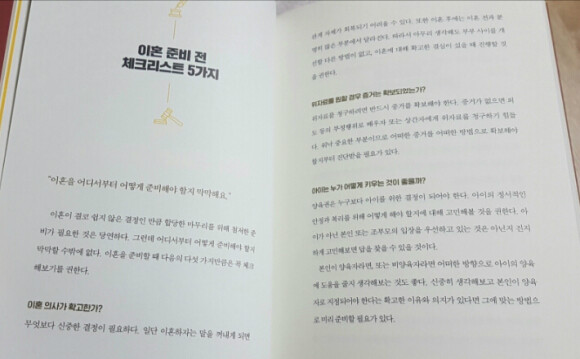 이혼 준비 전
체크리스트 5가지
"이혼을 어디서부터 어떻게 준비해야 할지 막막해요."
이혼이 결코 쉽지 않은 결정인 만큼 합당한 마무리를 위해 철저한 준
비가 필요한 것은 당연하다. 그런데 어디서부터 어떻게 준비해야 할지
막막할 수밖에 없다. 이혼을 준비할 때 다음의 다섯 가지만큼은 꼭 체크
해보기를 권한다.
이혼 의사가 확고한가?
무엇보다 신중한 결정이 필요하다. 일단 이혼하자는 말을 꺼내게 되면
관계 자체가 회복되기 어려울 수 있다. 또한 이혼 후에는 이혼 전과 분
명히 많은 부분에서 달라진다. 따라서 아무리 생각해도 부부 사이를 개
선할 다른 방법이 없고, 이혼에 대해 확고한 결심이 섰을 때 진행할 것
을 권한다.
위자료를 원할 경우 증거는 확보되었는가?
위자료를 청구하려면 반드시 증거를 확보해야 한다. 증거가 없으면 외
도 등의 부정행위로 배우자 또는 상간자에게 위자료를 청구하기 힘들
다. 워낙 중요한 부분이므로 어떠한 증거를 어떠한 방법으로 확보해야
할지부터 진단받을 필요가 있다.
아이는 누가 어떻게 키우는 것이 좋을까?
양육권은 누구보다 아이를 위한 결정이 되어야 한다. 아이의 정서적인
안정과 복리를 위해 어떻게 해야 할지에 대해 고민해볼 것을 권한다. 아
이가 아닌 본인 또는 조부모의 입장을 우선하고 있는 것은 아닌지 진지
하게 고민해보면 답을 찾을 수 있을 것이다.
본인이 양육자라면, 또는 비양육자라면 어떠한 방향으로 아이의 양육
에 도움을 줄지 생각해보는 것도 좋다. 신중히 생각해보고 본인이 양육
자로 지정되어야 한다는 확고한 이유와 의지가 있다면 그에 맞는 방법으
로 미리 준비할 필요가 있다.